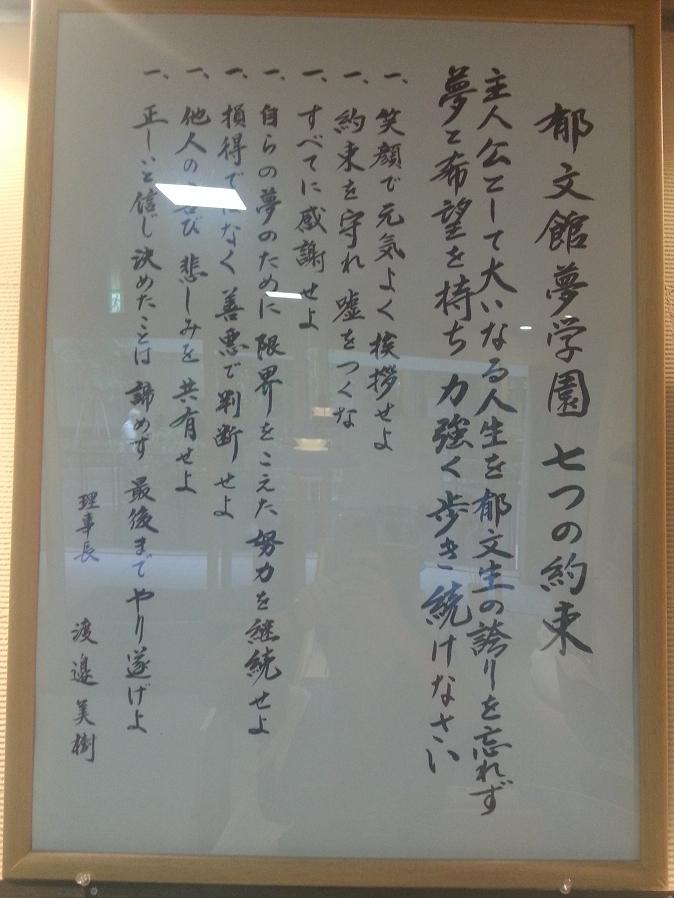 郁文館夢学園 七つの約束
主人公として大いなる人生を郁文生の誇りを忘れず
夢と希望を持ち 力強く歩き続けなさい
一、笑顔で元気よく挨拶せよ
一、約束を守れ 嘘をつくな
一、すべてに感謝せよ
一、自らの夢のために 限界をこえた 努力を継続せよ
一、損得ではなく 善悪で判断せよ
一、他人の喜び 悲しみを 共有せよ
一、正しいと信じ 決めたことは 諦めず 最後まで やり遂げよ
理事長 渡邉美樹